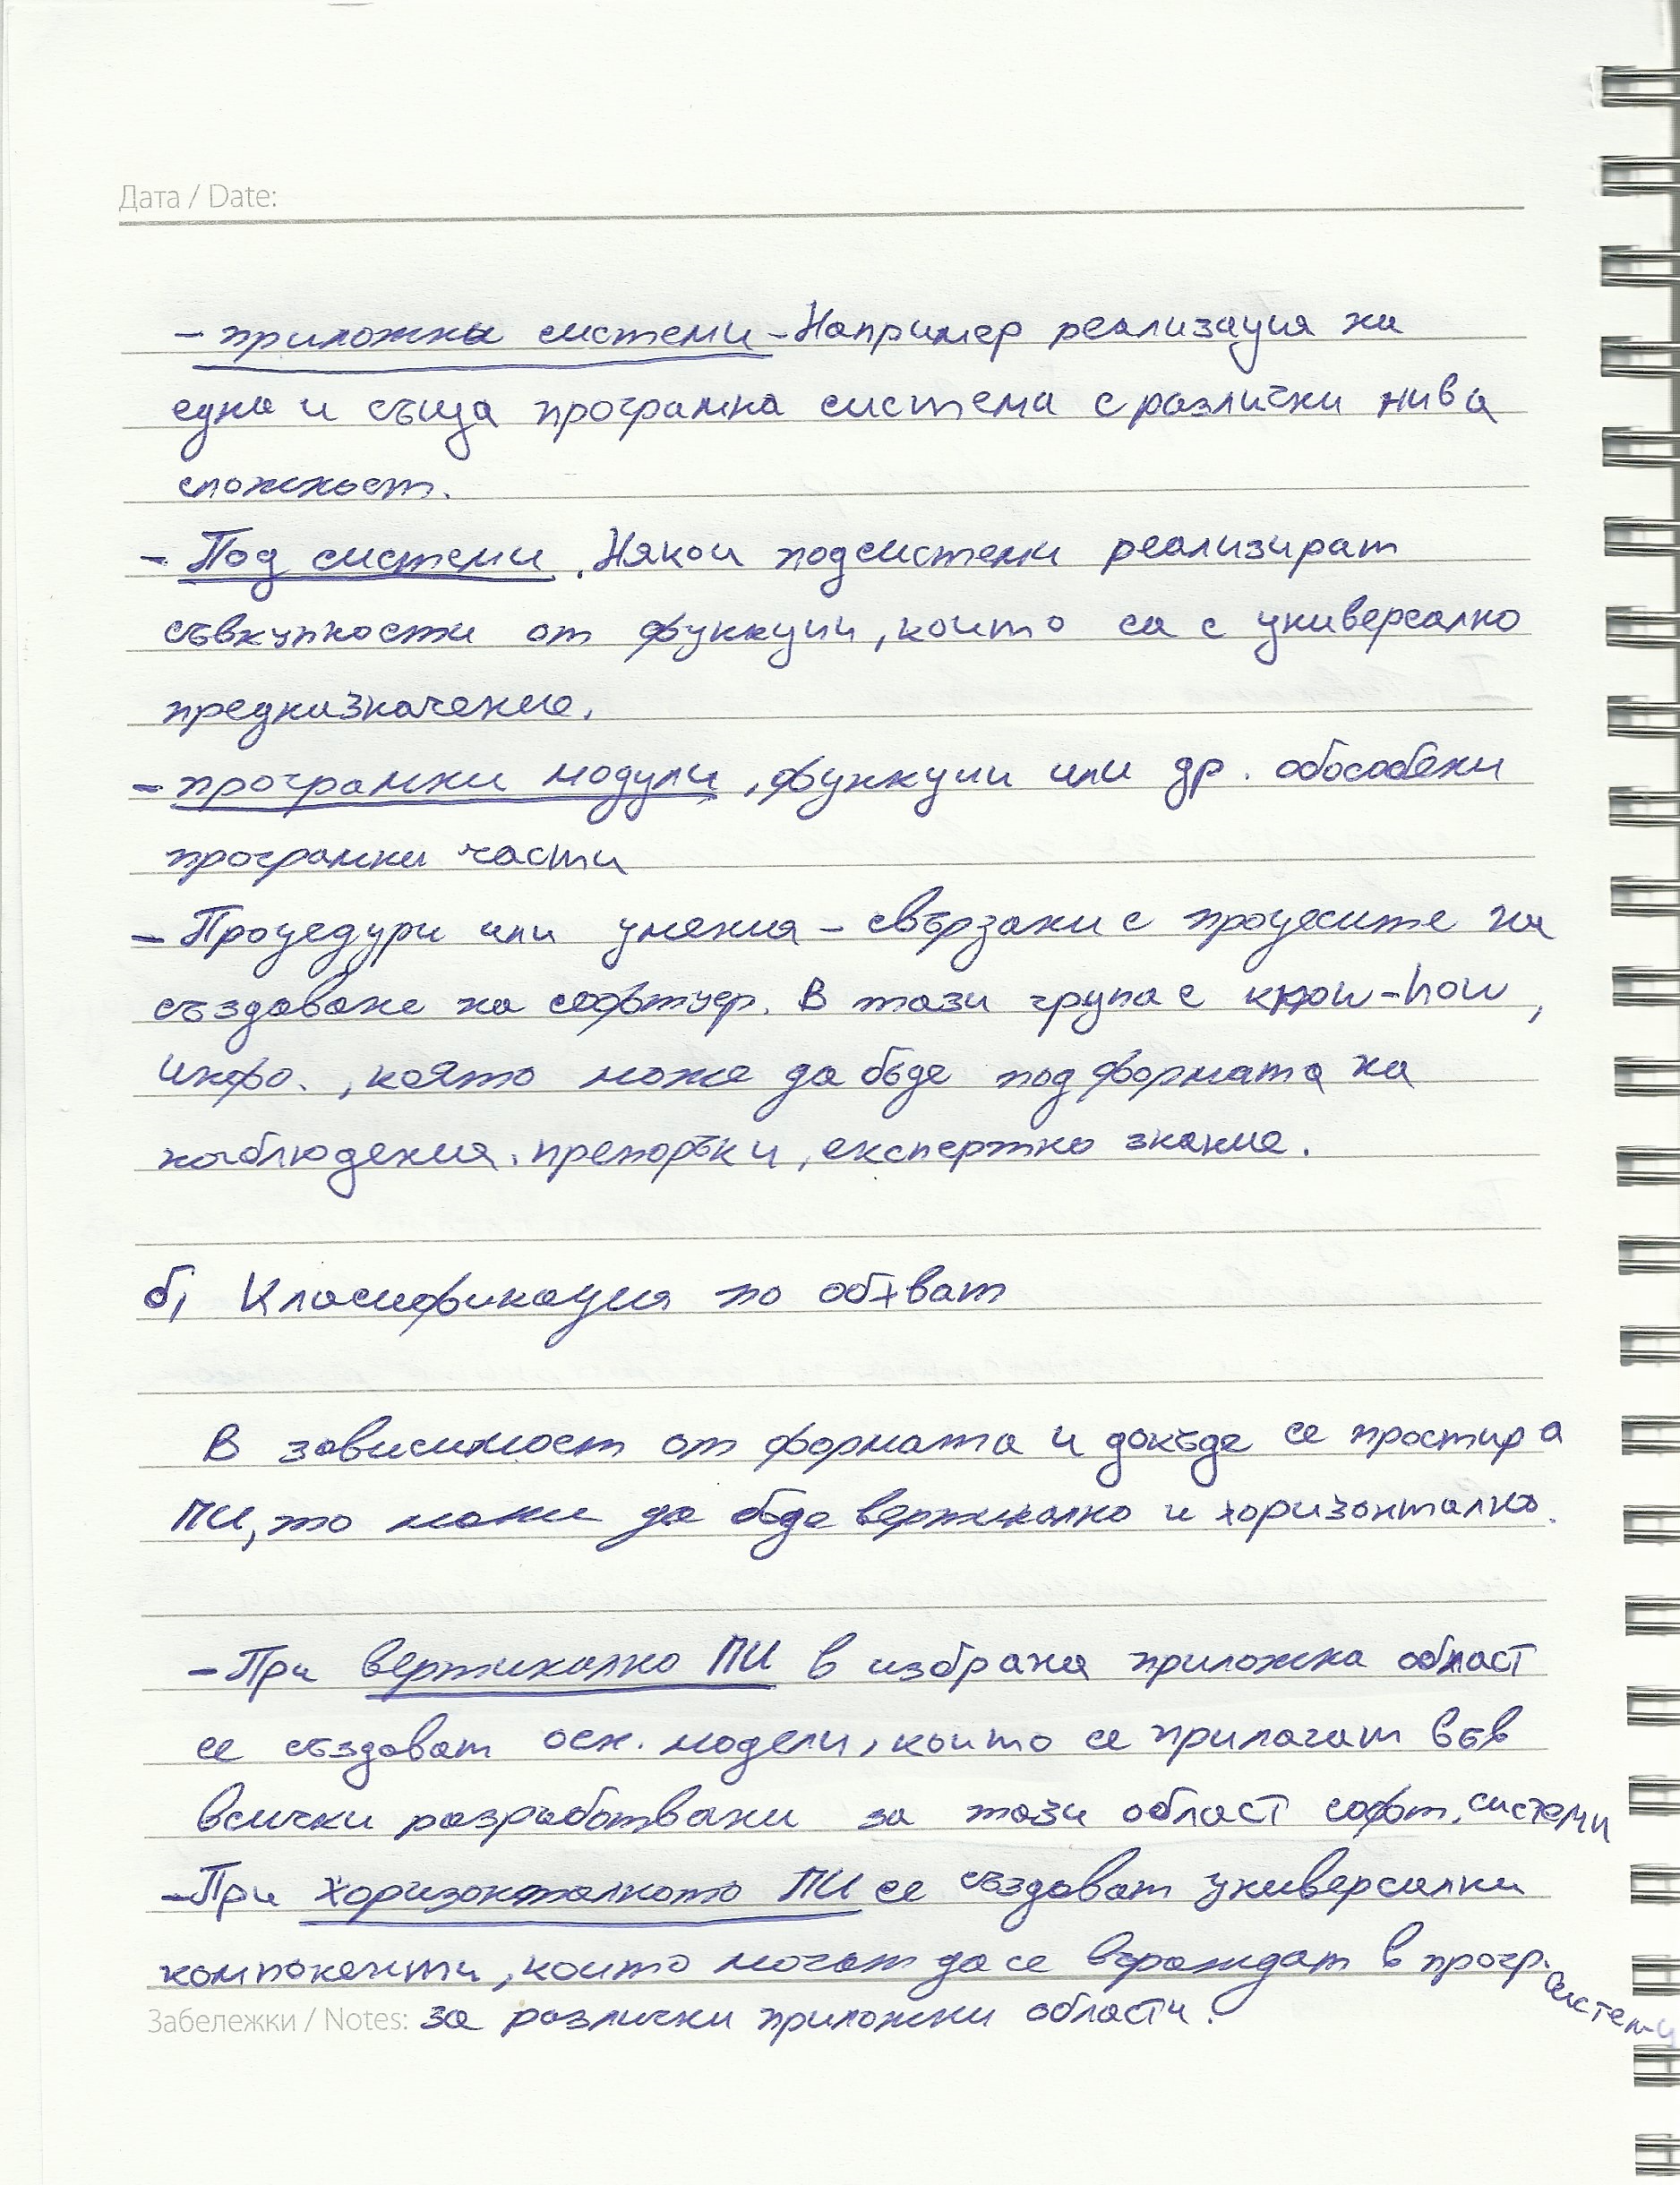 Дата / Date:
- приложни системи - Например реализация на
една и съща програмна система с различни нива
сложност.
- Под системи. Някои подсистеми реализират
съвкупности от функции, които са с универсално
предназначение.
- програмни модули, функции или др. обособени
програмни части
- Процедури или умения - свързани с процесите на
създаване на софтуер. В тази група с know-how,
инфо., която може да бъде под формата на
наблюдения, препоръки, експертно знание.
б, Класификация по обхват
В зависимост от формата и докъде се простира
ПИ, то може да бъде вертикално и хоризонтално.
- При вертикално ПИ в избрана приложна област
се създават осн. модели, които се прилагат във
всички разработвани за тази област софт. системи
- При хоризонталното ПИ се създават универсални
компоненти, които могат да се вграждат в прогр. системи
Забележки / Notes: за различни приложни области.